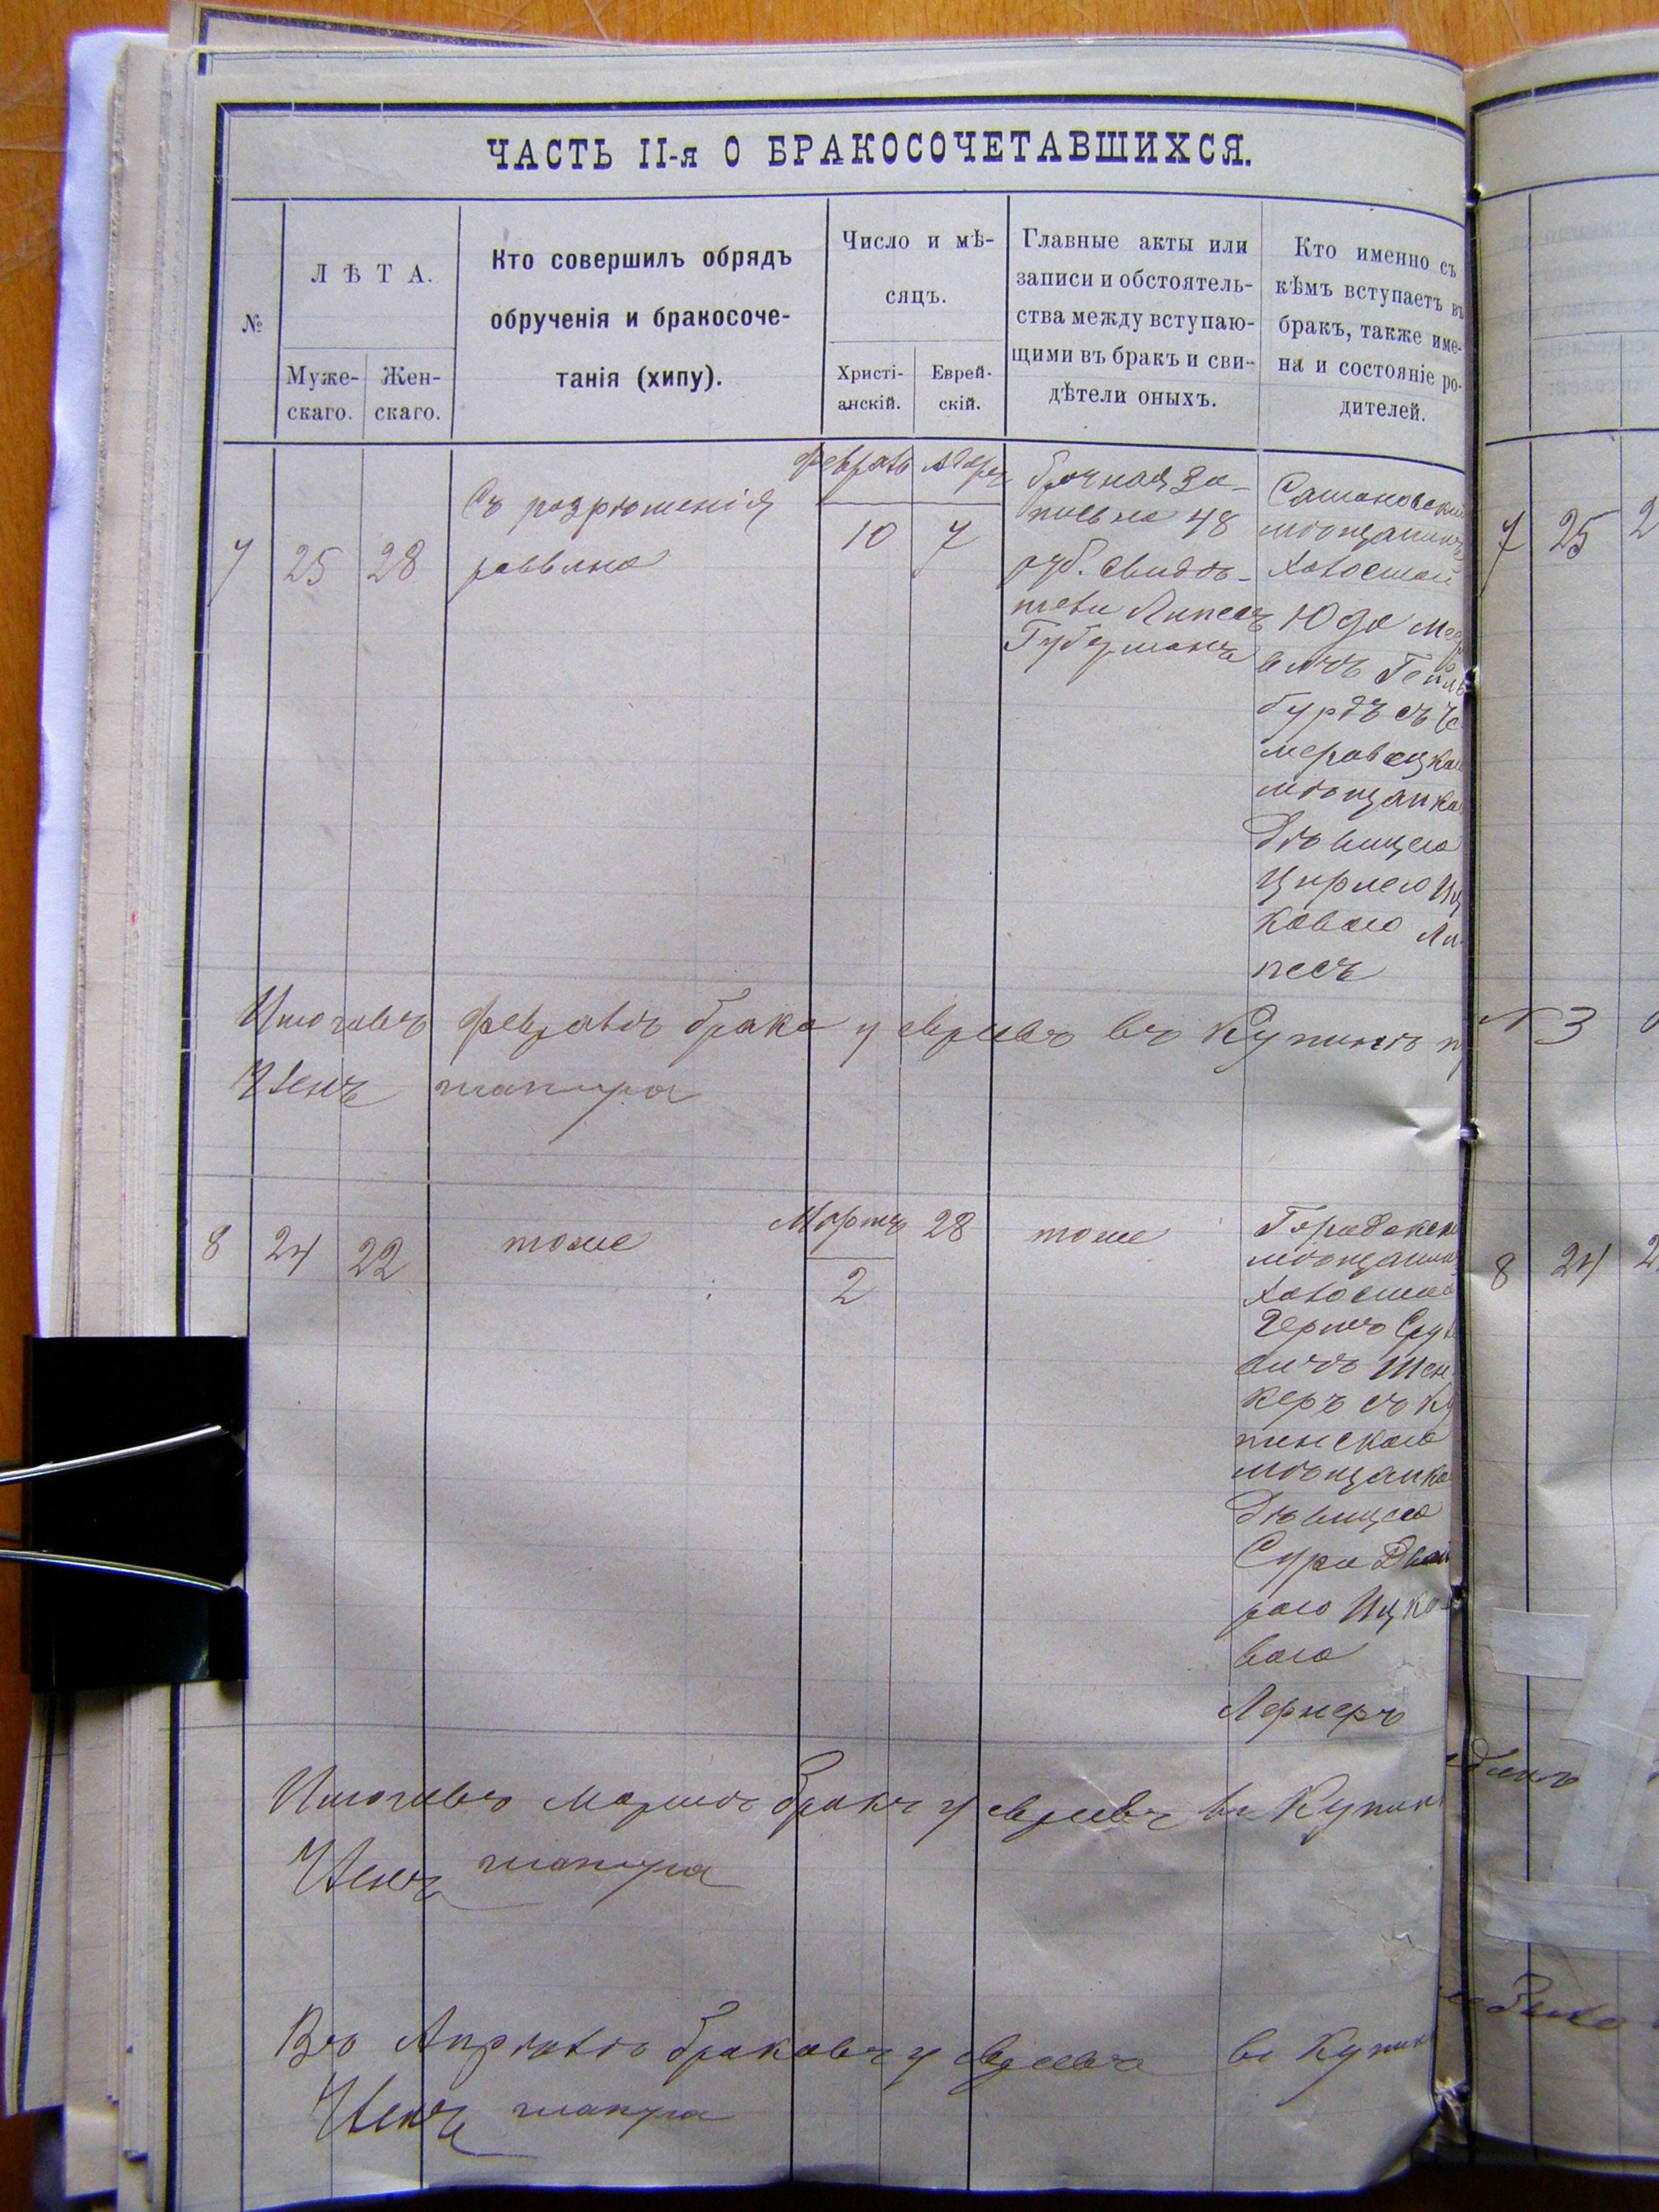 ЧАСТЬ II-я О БРАКОСОЧЕТАВШИХСЯ.
№
ЛѢТА.
Муже-
скаго.
Жен-
скаго.
Кто совершилъ обрядъ
обрученія и бракосоче-
танія (хипу).
Число и мѣ-
сяцъ.
Христі-
анскій.
Еврей-
скій.
Главные акты или
записи и обстоятель-
ства между вступаю-
щими въ бракъ и сви-
дѣтели оныхъ.
Кто именно съ
кѣмъ вступаетъ въ
бракъ, также име-
на и состояніе ро-
дителей.
7
25
28
Съ разрѣшенія
раввина
Февраль
10
Адаръ
7
Брачная за-
пись на 48
руб. Свидѣ-
тели Липесъ
Губерманъ
Сатановскій
мѣщанинъ
Холостой
Юда
вичъ Гель
бурдъ съ Че
меровецкою
мѣщанкою
Дѣвицею
Цирлею Иц
ковою Ли
песъ
Итого въ Февралѣ брака у евреевъ въ Купинѣ
Членъ шапира
8
24
22
тоже
Мартъ
2
28
тоже
Городокскій
мѣщанинъ
Холостой
Герш Сру
вичъ Шен
керъ съ Ку
пинскою
мѣщанкою
Дѣвицею
Сура Двой
рою Ицко
вою
Лернеръ
Итого въ Мартѣ бракъ у евреевъ въ Купин
Членъ шапира
Въ Апрѣлѣ браковъ у евреевъ въ Купин
Членъ шапира
7 25 2
№ 3
8 24 2